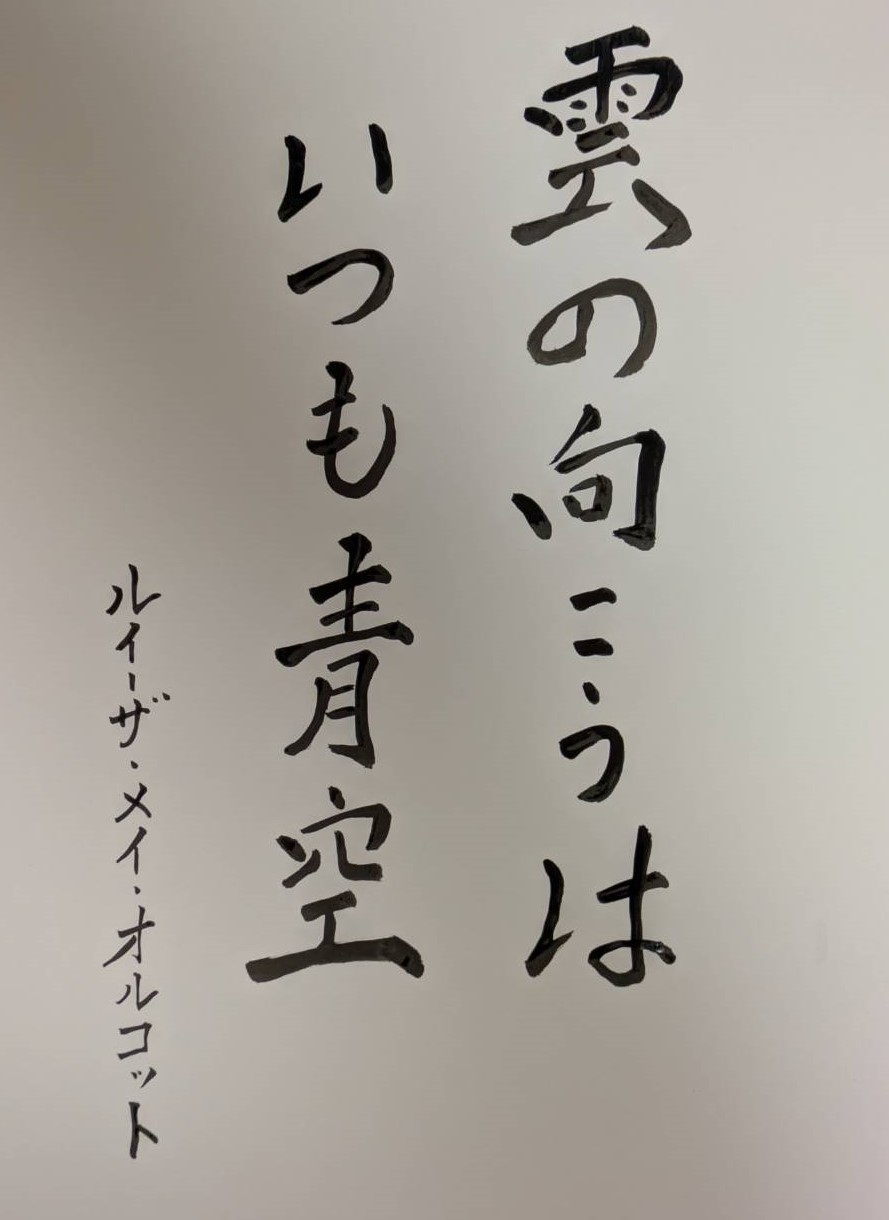 雲の向こうは
いつも青空
ルイーザ・メイ・オルコット